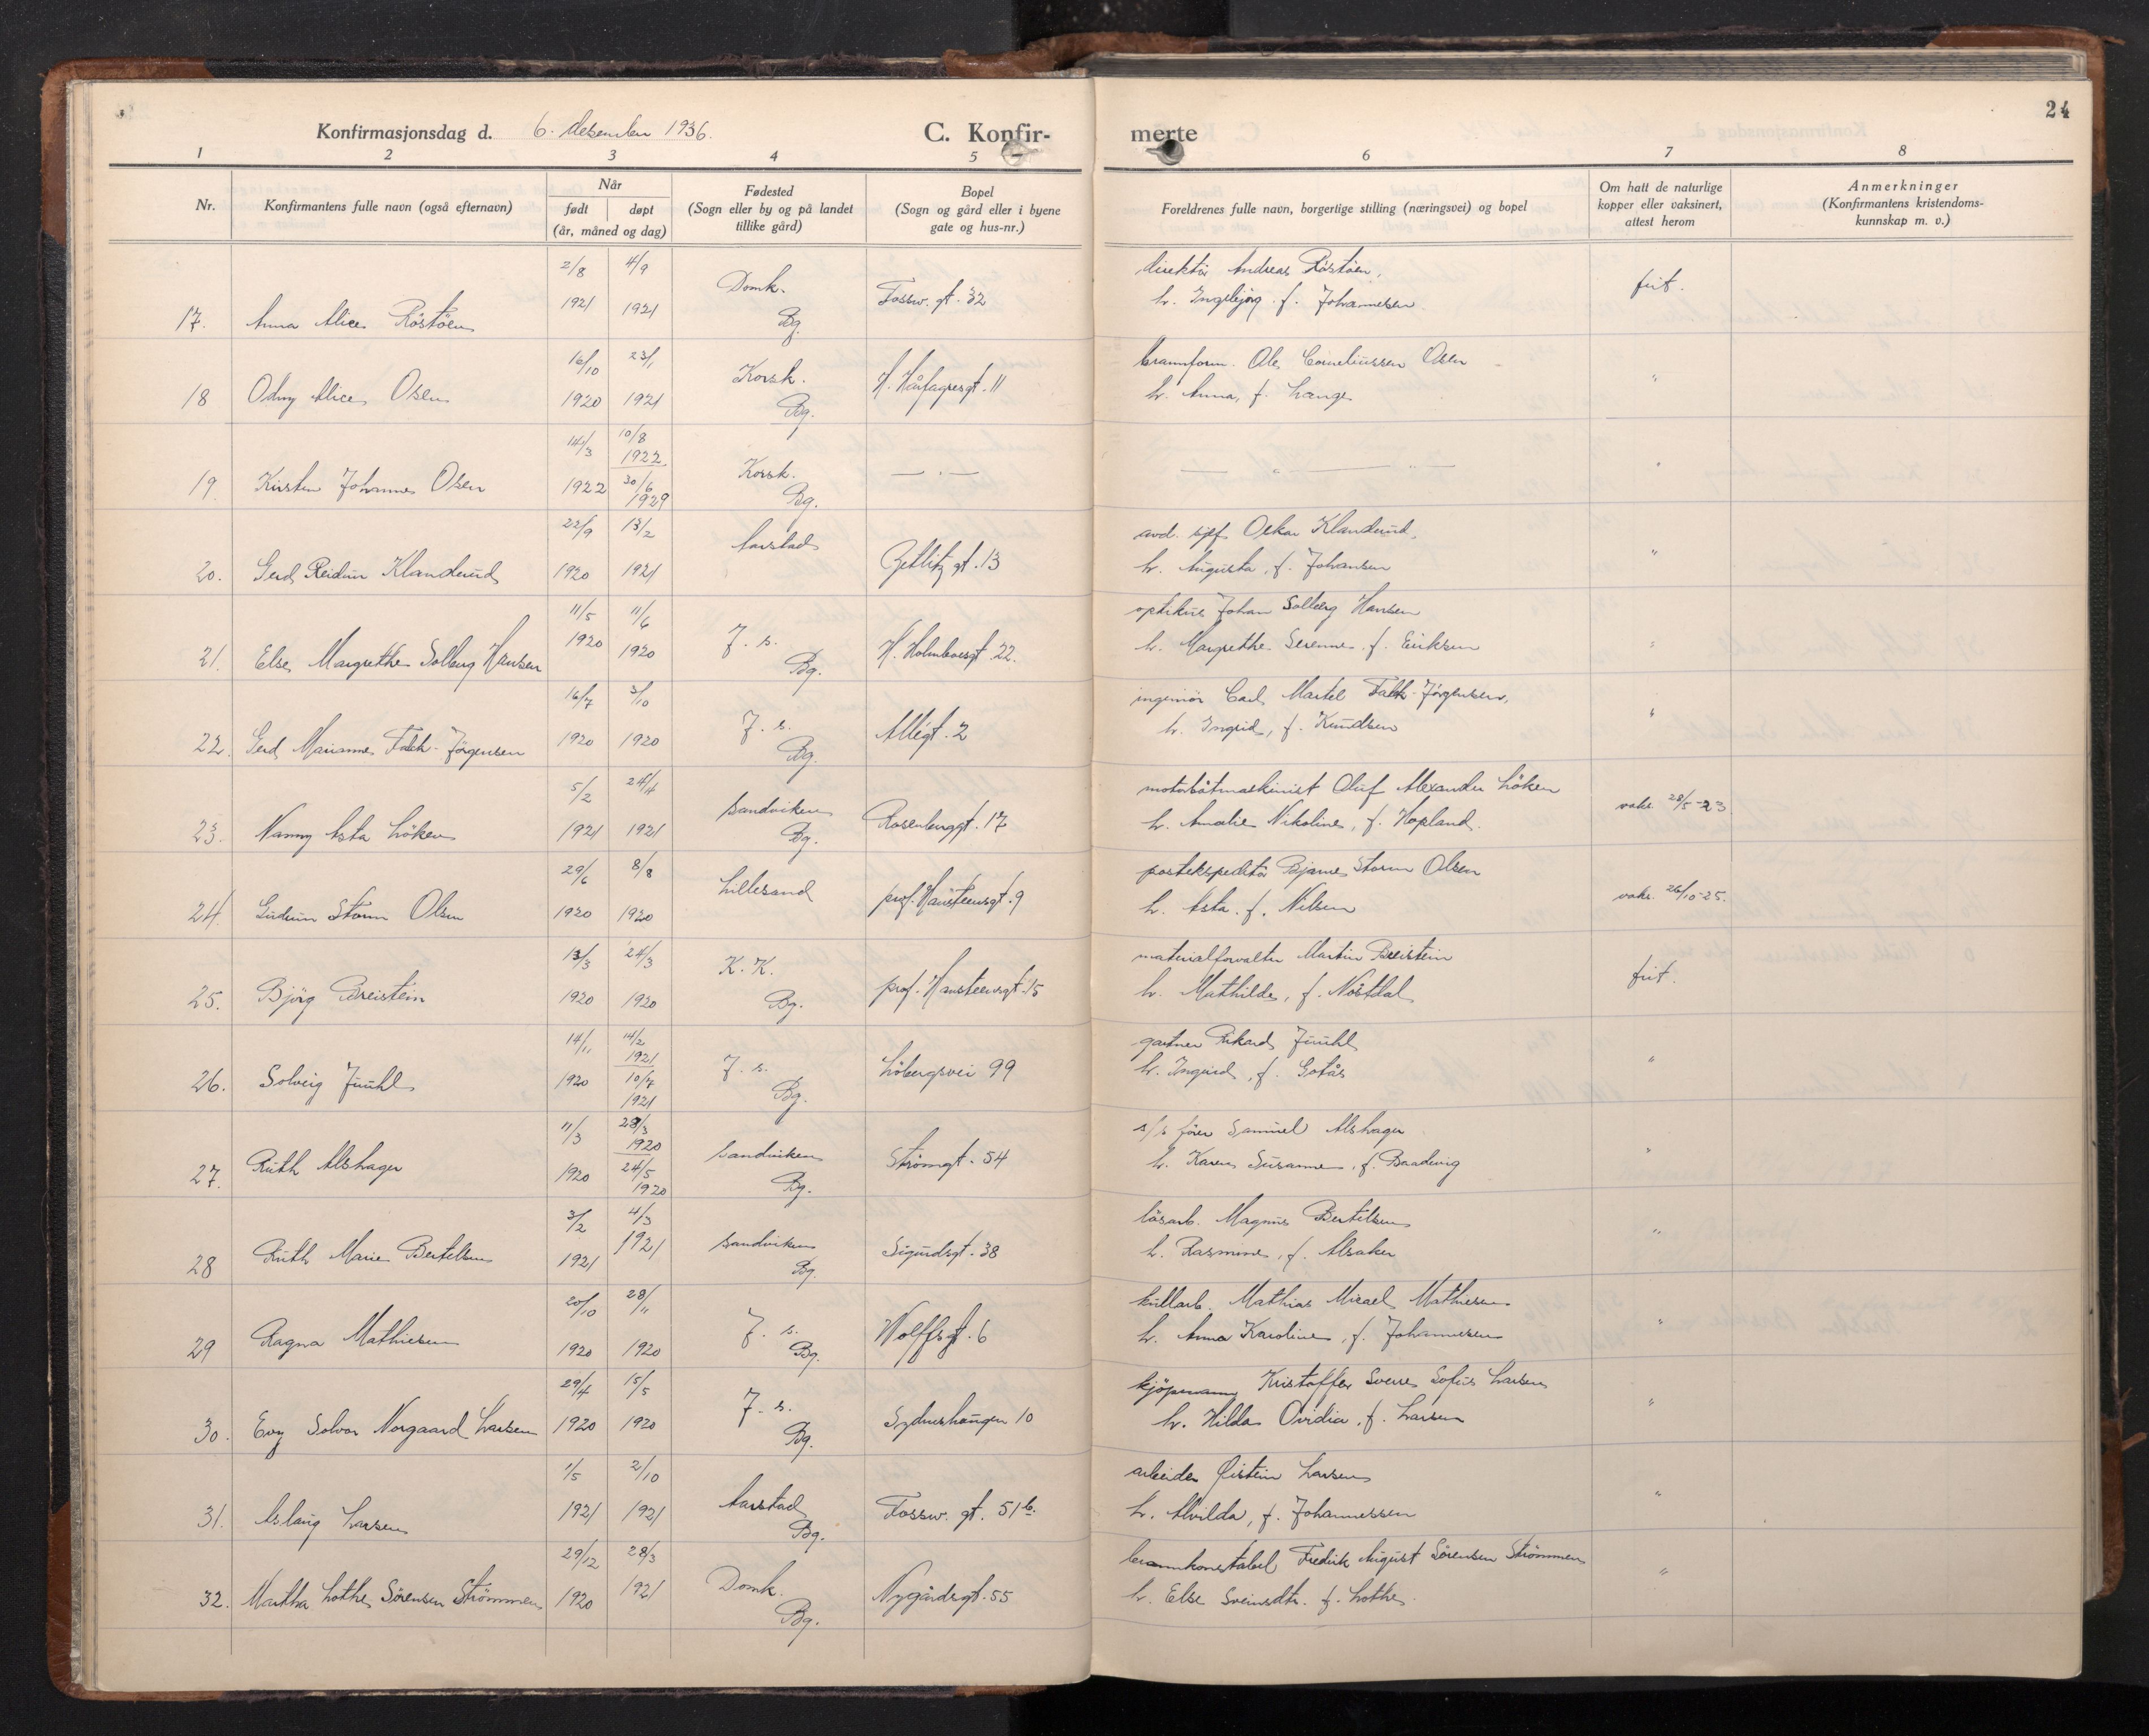 24
Konfirmasjonsdag d. 6. desember 1936. C. Konfir- merte
1 2 3 4 5 6 7 8
Nr.
Konfirmantens fulle navn (også efternavn)
Når
født døpt
(år, måned og dag)
Fødested
(Sogn eller by og på landet
tillike gård)
Bopel
(Sogn og gård eller i byene
gate og hus-nr.)
Foreldrenes fulle navn, borgertige stilling (næringsvei) og bopel
Om hatt de naturlige
kopper eller vaksinert,
attest herom
Anmerkninger
(Konfirmantens kristendoms-
kunnskap m. v.)
2/8 4/9 Domk. direktör Andreas Röstöen,
17. Anna Alice Röstöen 1921 1921 Bg. Fossw. gt. 32 h. Ingebjörg f. Johannesen frit.
16/10 23/1 Korsk. brannform. Ole Corneliussen Osen
18 Odny Alice Osen 1920 1921 Bg. H. Hårfagresgt. 11 h. Anna, f. Lange "
14/3 10/8 1922
19. Kirsten Johanne Osen 1922 30/6 1929 Korsk. Bg. — " — — " — " — "
22/9 13/2 Aarstad avd. sjef Oskar Klanderud,
20. Gerd Reidun Klanderud 1920 1921 Zetlitz gt. 13 h. Augusta, f. Johansen "
11/5 11/6 J. s. optikus Johan Solberg Hansen
21. Else Margrethe Solberg Hansen 1920 1920 Bg. H. Holmboesgt. 22. h. Margrethe Serenne f. Eriksen "
16/7 3/10 J. s. ingeniör Carl Martel Falck-Jörgensen,
22. Gerd Marianne Falck-Jörgensen 1920 1920 Bg. Allégt. 2 h. Ingrid, f. Knudsen "
5/2 24/4 Sandviken motorbåtmaskinist Oluf Alexander Löken
23. Nanny Asta Löken 1921 1921 Bg. Rosenbergsgt. 17 h. Amalie Nikoline, f. Hopland. vaks. 28/5-23
29/6 8/8 Lillesand postekspeditör Bjarne Storm Olsen
24. Gudrun Storm Olsen 1920 1920 prof. Hansteensgt. 9 h. Asta f. Nilsen vaks. 26/10-25.
13/3 24/3 K. K. materialforvalter Martin Breistein
25. Björg Breistein 1920 1920 Bg. prof. Hansteensgt. 15 h. Mathilde, f. Nöstdal frit.
14/11 14/2 1921 J. s. gartner Rikard Juuhl
26. Solveig Juuhl 1920 10/7 1921 Bg. Löbergsvei 99 h. Ingrid, f. Gotås "
11/3 28/3 1920 Sandviken s/s förer Samuel Alshager
27. Ruth Alshager 1920 24/5 1920 Bg. Strömgt. 54 h. Karen Susanne, f. Baadsvig "
3/2 4/3 Sandviken lösarb. Magnus Bertelsen
28 Ruth Marie Bertelsen 1921 1921 Bg. Sigurdsgt. 38 h. Rasmine, f. Alsaker "
20/10 28/11 J. s. kullarb. Mathias Micael Mathiesen
29 Ragna Mathiesen 1920 1920 Bg. Wolffsgt. 6 h. Anna Karoline, f. Johannesen "
29/4 15/5 J. s. kjöpmann Kristoffer Sverre Sofus Larsen
30. Evy Solvor Norgaard Larsen 1920 1920 Bg. Sydneshaugen 10 h. Hilda Ovidia, f. Larsen "
1/5 2/10 Aarstad arbeider Øistein Larsen
31. Aslaug Larsen 1921 1921 Bg. Fossw. gt. 51 b. h. Alvilda, f. Johannessen "
29/12 28/3 Domk. brannkonstabel Fredrik August Sörensen Strömmen
32. Martha Lothe Sörensen Strömmen 1920 1921 Bg. Nygårdsgt. 55 h. Else Sveinsdtr. f. Lothe. "